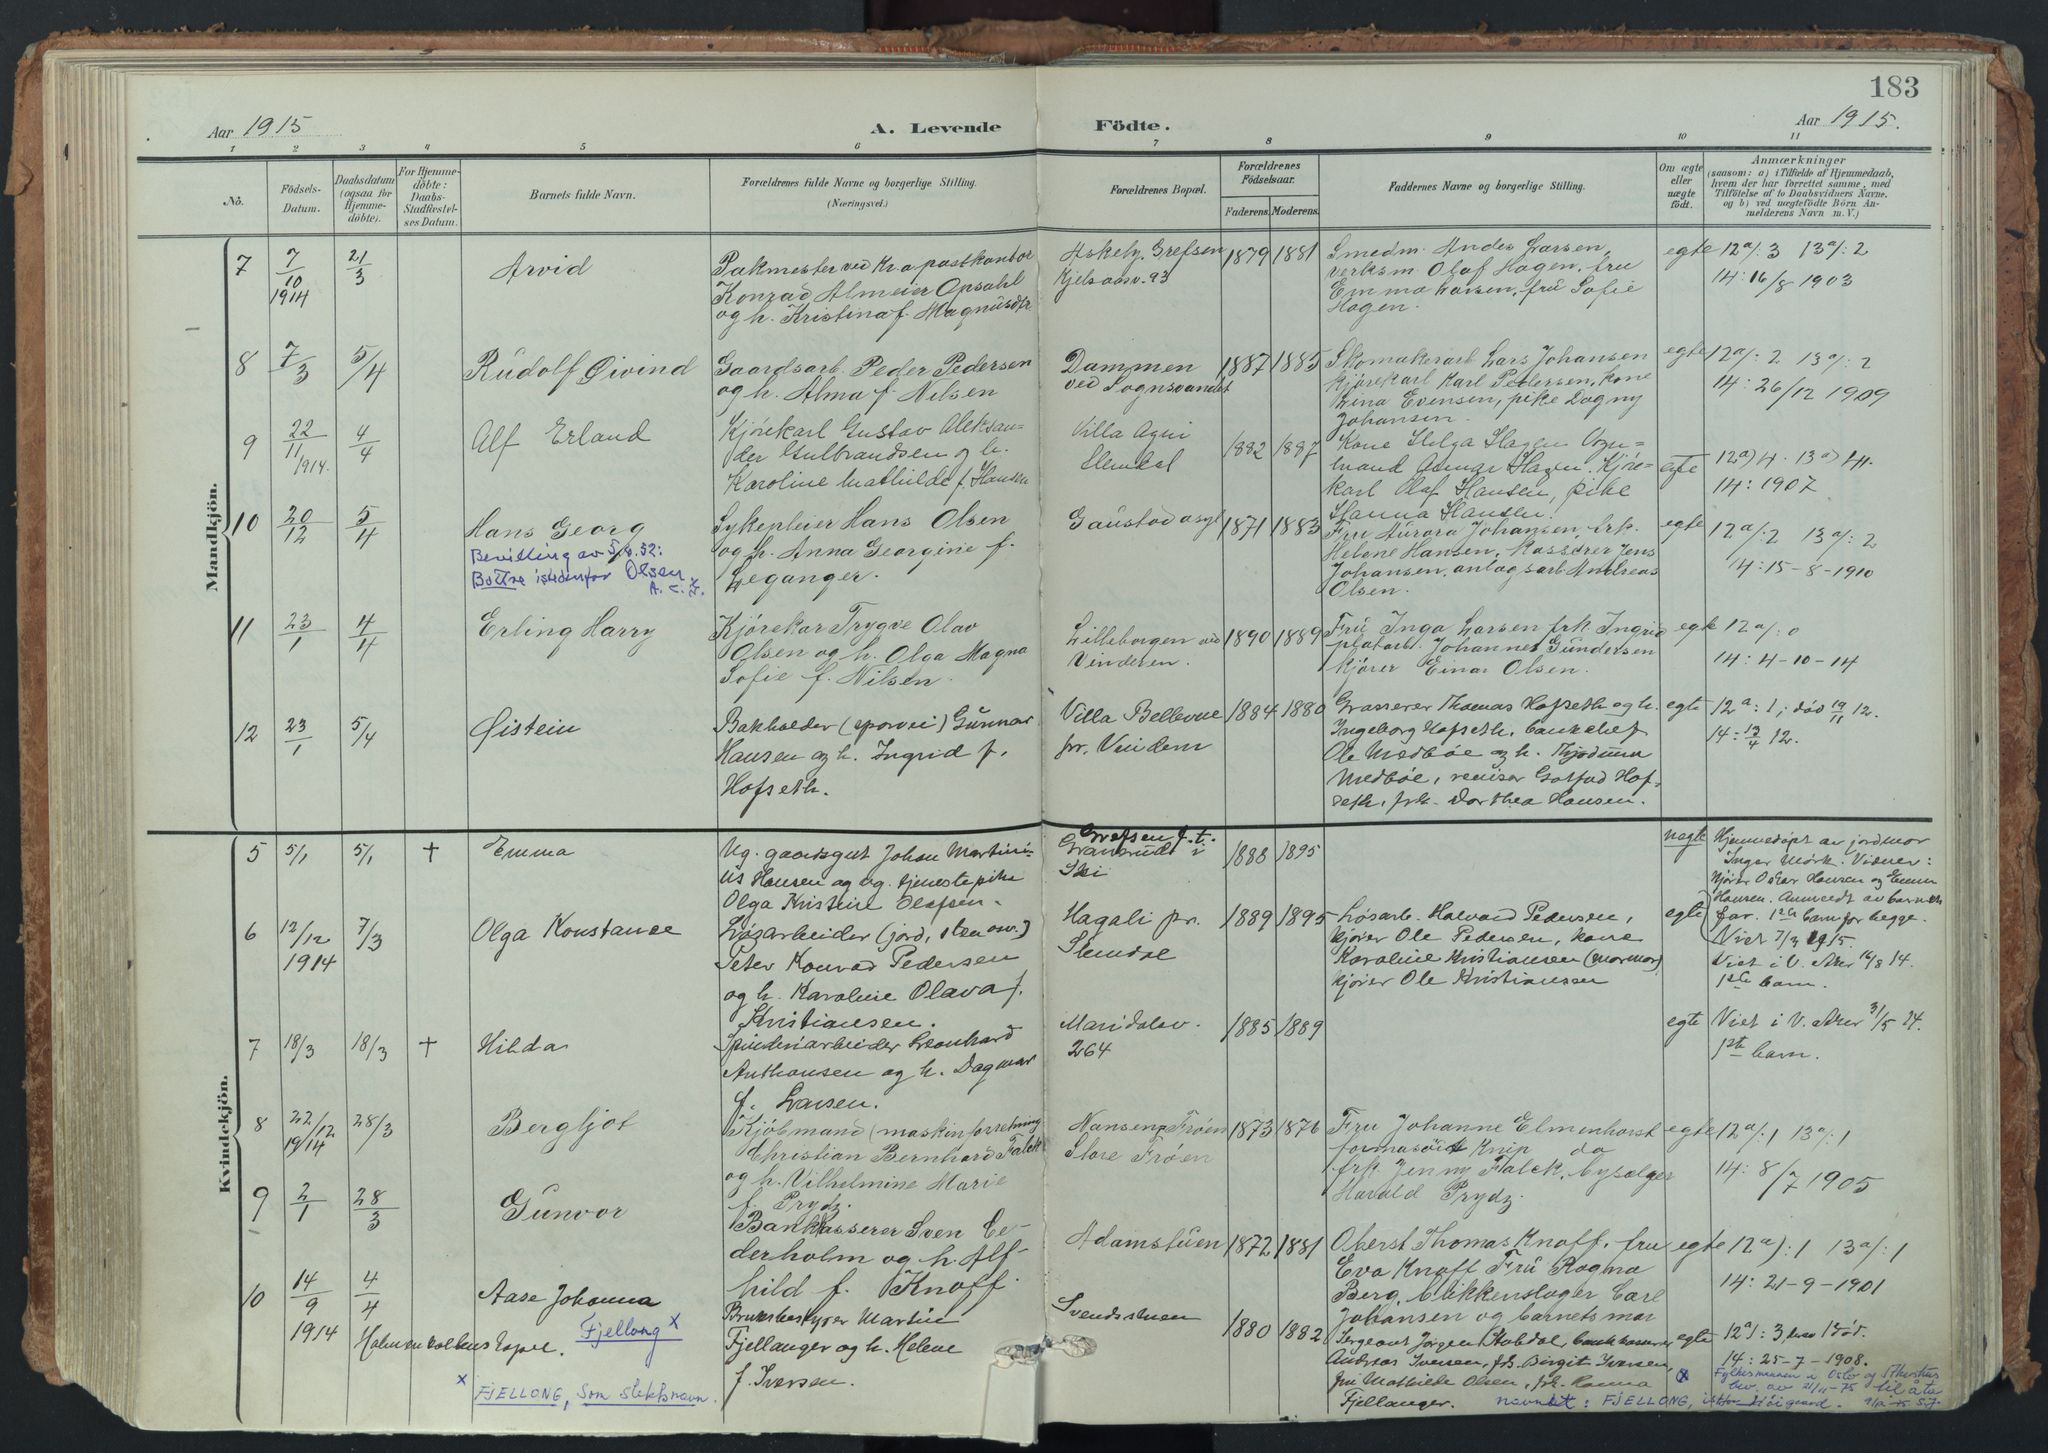 183
Aar 1915
A. Levende Födte.
Aar 1915.
1 2 3 4 5 6 7 8 9 10 11
No.
Födsels-Datum.
Daabsdatum (ogsaa for Hjemme-döbte).
For Hjemme-döbte: Daabs-Stadfæstel-ses Datum.
Barnets fulde Navn.
Forældrenes fulde Navne og borgerlige Stilling.
(Næringsvei.)
Forældrenes Bopæl.
Forældrenes Födselsaar.
Faderens. Moderens.
Faddernes Navne og borgerlige Stilling.
Om ægte eller uægte födt.
Anmærkninger
(saasom: a) i Tilfælde af Hjemmedaab,
hvem der har forrettet samme, med
Tilföielse af to Daabsvidners Navne.
og b) ved uægtefödte Börn An-
melderens Navn m. V.)
Mandkjön.
7 7/10 1914 21/3 Arvid
Pakmester ved Kr.a postkontor
Konrad Almeier Opsahl
og h. Kristina f. Magnusdtr.
Askely, Grefsen
Kjelsaasv. 93
1879 1881
Smedm. Andes Larsen,
verksm. Olaf Hagen, fru
Emma Larsen, fru Sofie
Hagen.
egte 12a/: 3 13a/: 2
14: 16/8 1903
8 7/3 5/4 Rudolf Øivind
Gaardsarb. Peder Pedersen
og h. Alma f. Nilsen
Dammen
ved Sognsvandet
1887 1885
Skomakerarb. Lars Johansen
kjørekarl Karl Pedersen, kone
Lina Evensen, pike Dagny
Johansen.
egte 12a/: 2 13a/: 2
14: 26/12 1909
9 22/11 1914. 4/4 Alf Erland
Kjørekarl Gustav Aleksan=
der Gulbrandsen og h.
Karoline Mathilde f. Hansen
Villa Agni
Slemdal
1882 1887
Kone Helga Hagen Vogn=
mand Gunnar Hagen. Kjøre=
karl Olaf Hansen, pike
Hanna Hansen.
egte 12a) 4. 13a) 4.
14: 1907
10 20/12 5/4 Hans Georg
Bevilling av 5/8.52:
Bottre istedenfor Olsen
Sykepleier Hans Olsen
og h. Anna Georgine f.
Leganger.
Gaustad asyl
1871 1883
Fru Aurora Johansen, frk.
Helene Hansen, kasserer Jens
Johansen, anlagsarb. Andreas
Olsen.
egte 12a/: 2 13a/: 2
14: 15-8-1910
11 23/1 4/4 Erling Harry
Kjørekar Trygve Olav
Olsen og h. Olga Magna
Sofie f. Nilsen.
Lilleborgen ved
Vinderen.
1890 1889
Fru Inga Larsen frk. Ingrid
platarb. Johannes Gundersen
kjører Einar Olsen.
egte 12a/: 0
14: 4-10-14
12 23/1 5/4 Øistein
Bakholder (sporvei) Gunnar
Hansen og h. Ingrid f.
Hofseth.
Villa Bellevue
pr. Vindern
1884 1880
Grosserer Thomas Hofseth og h.
Ingeborg Hofseth, bankchef
Ole Medbøe og h.
Medbøe, revisor Gotfred Hof=
seth, frk. Dorthea Hansen.
egte 12a: 1, død 19/11 12.
14: 12.
Kvindekjön.
5 5/1 5/1 + Emma
Ug. gaardsgut Johan Martini=
us Hansen og ug. tjenestepike
Olga Kristine Olafsen.
Grefsen f. t.
Gransrudt i
Ski
1888 1895
uegte
Hjemmedøpt av jordmor
Inger Mørk. Vidner:
kjører Oskar Hansen og Emma
Hansen. Anmeldt av barnets
far. 1ste barn for begge.
Viet 7/3 1915.
6 12/12 1914 7/3 Olga Konstanse
Løsarbeider (jord, sten osv.)
Peter Konrad Pedersen
og h. Karoline Olava f.
Kristiansen.
Hagali pr.
Slemdal
1889 1895
Løsarb. Halvard Pedersen,
kjører Ole Pedersen, kone
Karoline Kristiansen (mormor)
kjører Ole Kristiansen
egte Viet i V. Aker 16/8 14.
1ste barn.
7 18/3 18/3 + Hilda
Spinderiarbeider Leonhard
Anthonsen og h. Dagmar
f. Larsen.
Maridalsv.
264
1885 1889
egte Viet i V. Aker 31/5 14.
1ste barn.
8 22/12 1914 28/3 Bergljot
Kjøbmand (maskinforretning
Christian Bernhard Falck
og h. Vilhelmine Marie
f. Prydz.
Nansens Frøen
Store Frøen
1873 1876
Fru Johanne Elmenhorst
Knip do
frk. Jenny Falck, bysælger
Harald Prydz.
egte 12a/: 1 13a/: 1
14: 8/7 1905
9 2/1 28/3 Gunvor
Bankkasserer Sven Ce-
derholm og h. Alf-
hild f. Knoff.
Adamstuen
1872 1881
Oberst Thomas Knoff, fru
Eva Knoff Fru Ragna
Berg, blikkenslager Carl
Johansen og barnets mor
egte 12a): 1 13a/: 1
14: 21-9-1901
10 14/9 1914 4/4 Aase Johanna
Fjellong x
Holmenkollens kapel.
x FJELLONG, som slektsnavn.
Bruksbestyrer Martin
Fjellanger og h. Helene
f. Iversen.
Svendstuen
1880 1882
Sergeant Jørgen Stubdal, bankkasserer
Andreas Iversen, frk. Birgit Iversen,
fru Mathilde Olsen, frk. Hanna
Fjellanger.
egte 12a): 3 hvorav 1 død.
14: 25-7-1908.
x Fylkesmannen i Oslo og Akershus
bev. av 21/11-75 til å ta
navnet: FJELLONG,